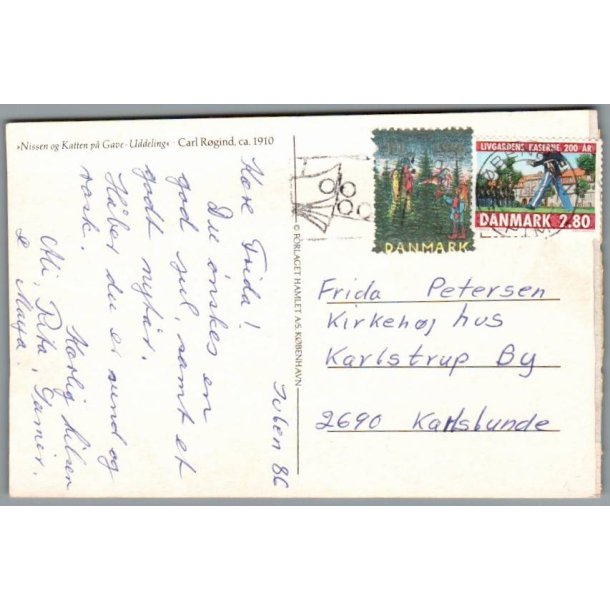 »Nissen og Katten på Gave-Uddeling« · Carl Røgind, ca. 1910
Julen 86
Kære Frida!
Du ønskes en
god jul, samt et
godt nytår.
Håber du er sund og
rask.
Kærlig hilsen
Olli, Rita,
& Maya.
© FORLAGET HAMLET A/S. KØBENHAVN
DANMARK
LIVGARDENS KASERNE 200 ÅR
DANMARK 2.80
Frida Petersen
Kirkehøj hus
Karlstrup By
2690 Karlslunde